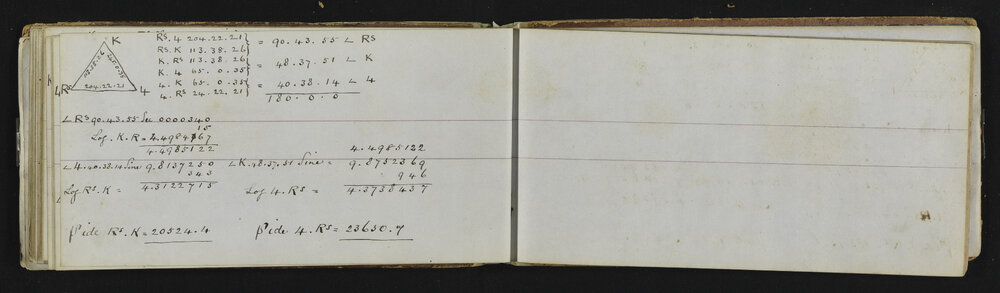 K
113.38.26
65.0.35
204.22.21
4
Rs
Rs. 4 204.22.21 } = 90.43.55 ∠ Rs
Rs. K 113.38.26
K. Rs 113.38.26 } = 48.37.51 ∠ K
K. 4 65. 0.35
4. K 65. 0.35 } = 40.38.14 ∠ 4
4. Rs 24.22.21
180. 0. 0
∠ Rs 90.43.55 Sec 0000340
15
Log. K.R = 4.4984767
4.4985122
∠ 4. 40.38.14 Sine 9.8137250
343
Log Rs. K = 4.3122715
4.4985122
∠ K. 48.37.51 Sine = 9.8752369
946
Log 4. Rs = 4.3738437
Side Rs. K = 20524.4
Side 4. Rs = 23650.7